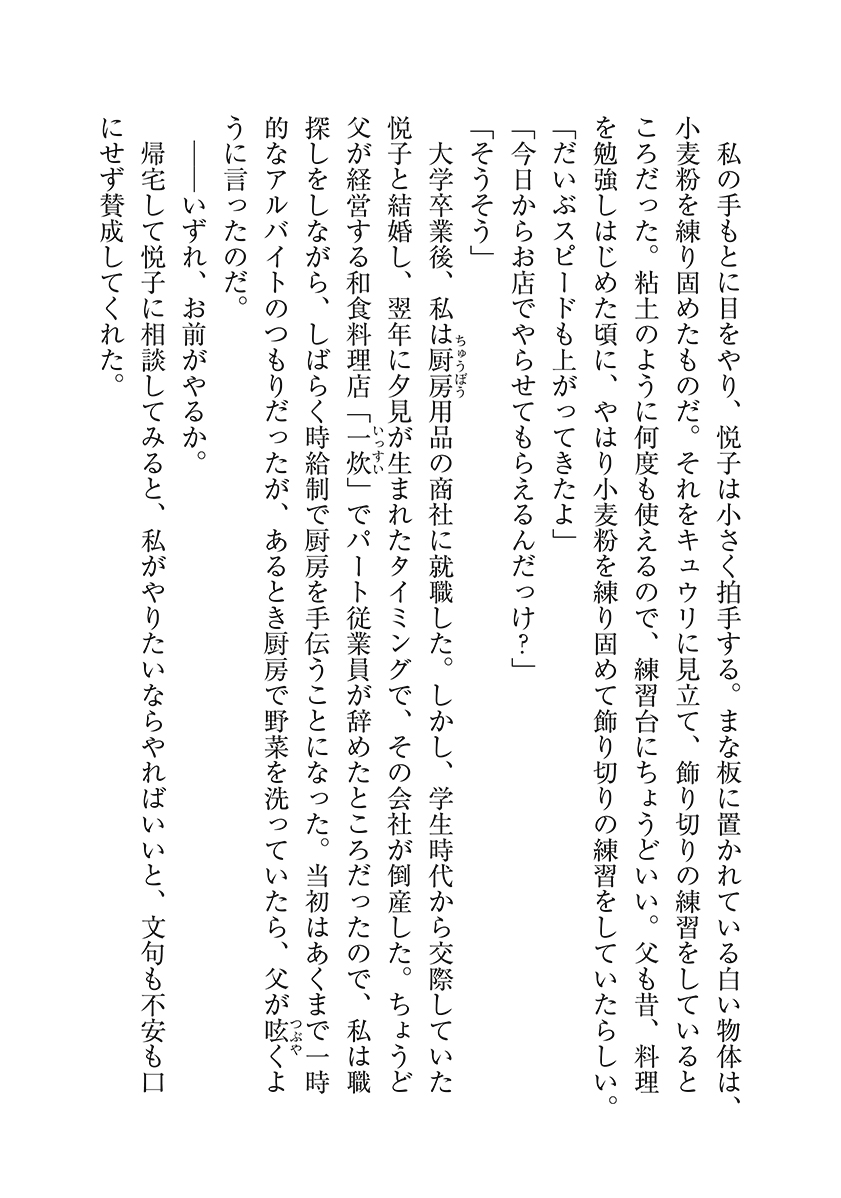 私の手もとに目をやり、悦子は小さく拍手する。まな板に置かれている白い物体は、
小麦粉を練り固めたものだ。それをキュウリに見立て、飾り切りの練習をしていると
ころだった。粘土のように何度も使えるので、練習台にちょうどいい。父も昔、料理
を勉強しはじめた頃に、やはり小麦粉を練り固めて飾り切りの練習をしていたらしい。
「だいぶスピードも上がってきたよ」
「今日からお店でやらせてもらえるんだっけ？」
「そうそう」
　大学卒業後、私は厨房ちゅうぼう用品の商社に就職した。しかし、学生時代から交際していた
悦子と結婚し、翌年に夕見が生まれたタイミングで、その会社が倒産した。ちょうど
父が経営する和食料理店「一炊いっすい」でパート従業員が辞めたところだったので、私は職
探しをしながら、しばらく時給制で厨房を手伝うことになった。当初はあくまで一時
的なアルバイトのつもりだったが、あるとき厨房で野菜を洗っていたら、父が呟つぶやくよ
うに言ったのだ。
　――いずれ、お前がやるか。
　帰宅して悦子に相談してみると、私がやりたいならやればいいと、文句も不安も口
にせず賛成してくれた。